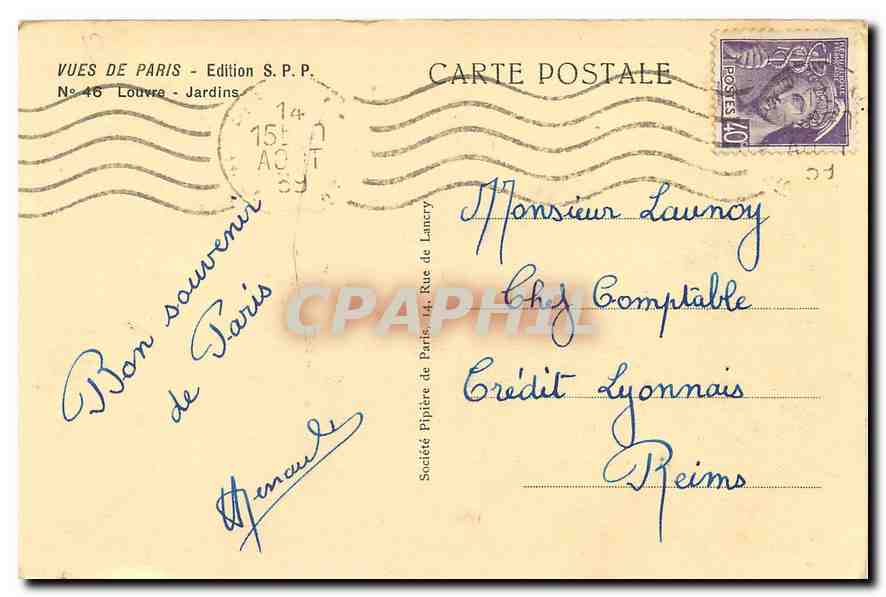 VUES DE PARIS - Edition S. P. P.
Nº 46 Louvre - Jardins
CARTE POSTALE
POSTES
40
14
AOUT
39
Bon souvenir
de Paris
Société Pipière de Paris, 14, Rue de Lancry
Monsieur Launoy
Chef Comptable
Crédit Lyonnais
Reims
CPAPHIL